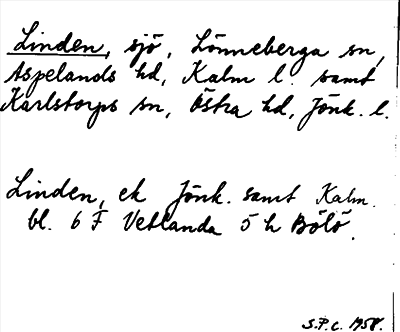 Linden, sjö, Lönneberga sn,
Aspelands hd, Kalm l. samt
Karlstorps sn, Östra hd, Jönk. l.
Linden, ek Jönk. samt Kalm.
bl. 6 F Vetlanda 5 h Bölö.
S.P.C. 1958.